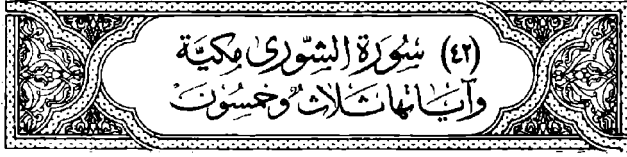 (٤٢) سُورَةُ الشُّورَىٰ مَكِيَّة
وَآيَاتُهَا ثَلَاثٌ وَخَمْسُونَ